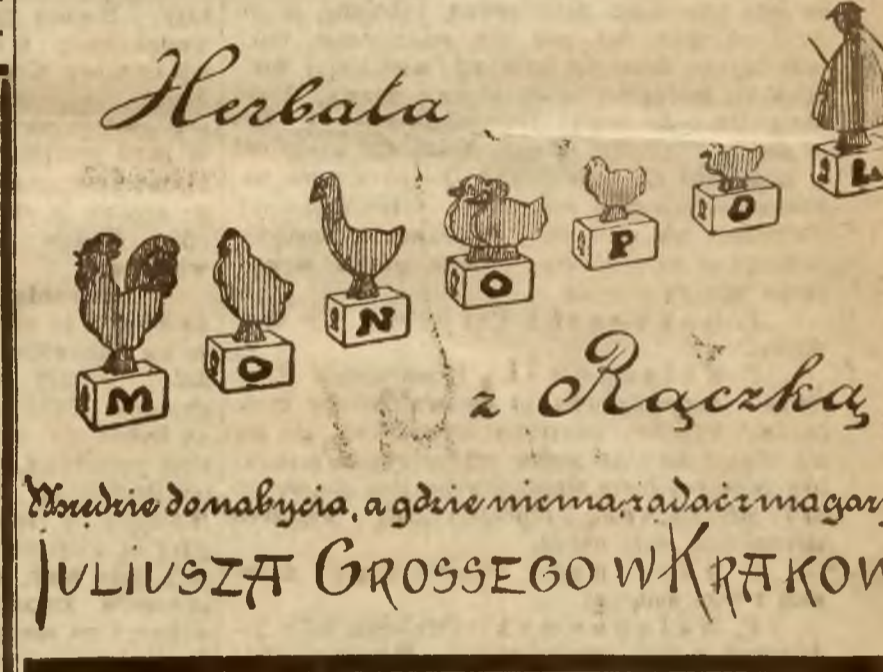 Herbata
MONOPOL
z Rączką
Wszędzie do nabycia, a gdzie niema, żądać z magaz
JULIUSZA GROSSEGO W KRAKOW